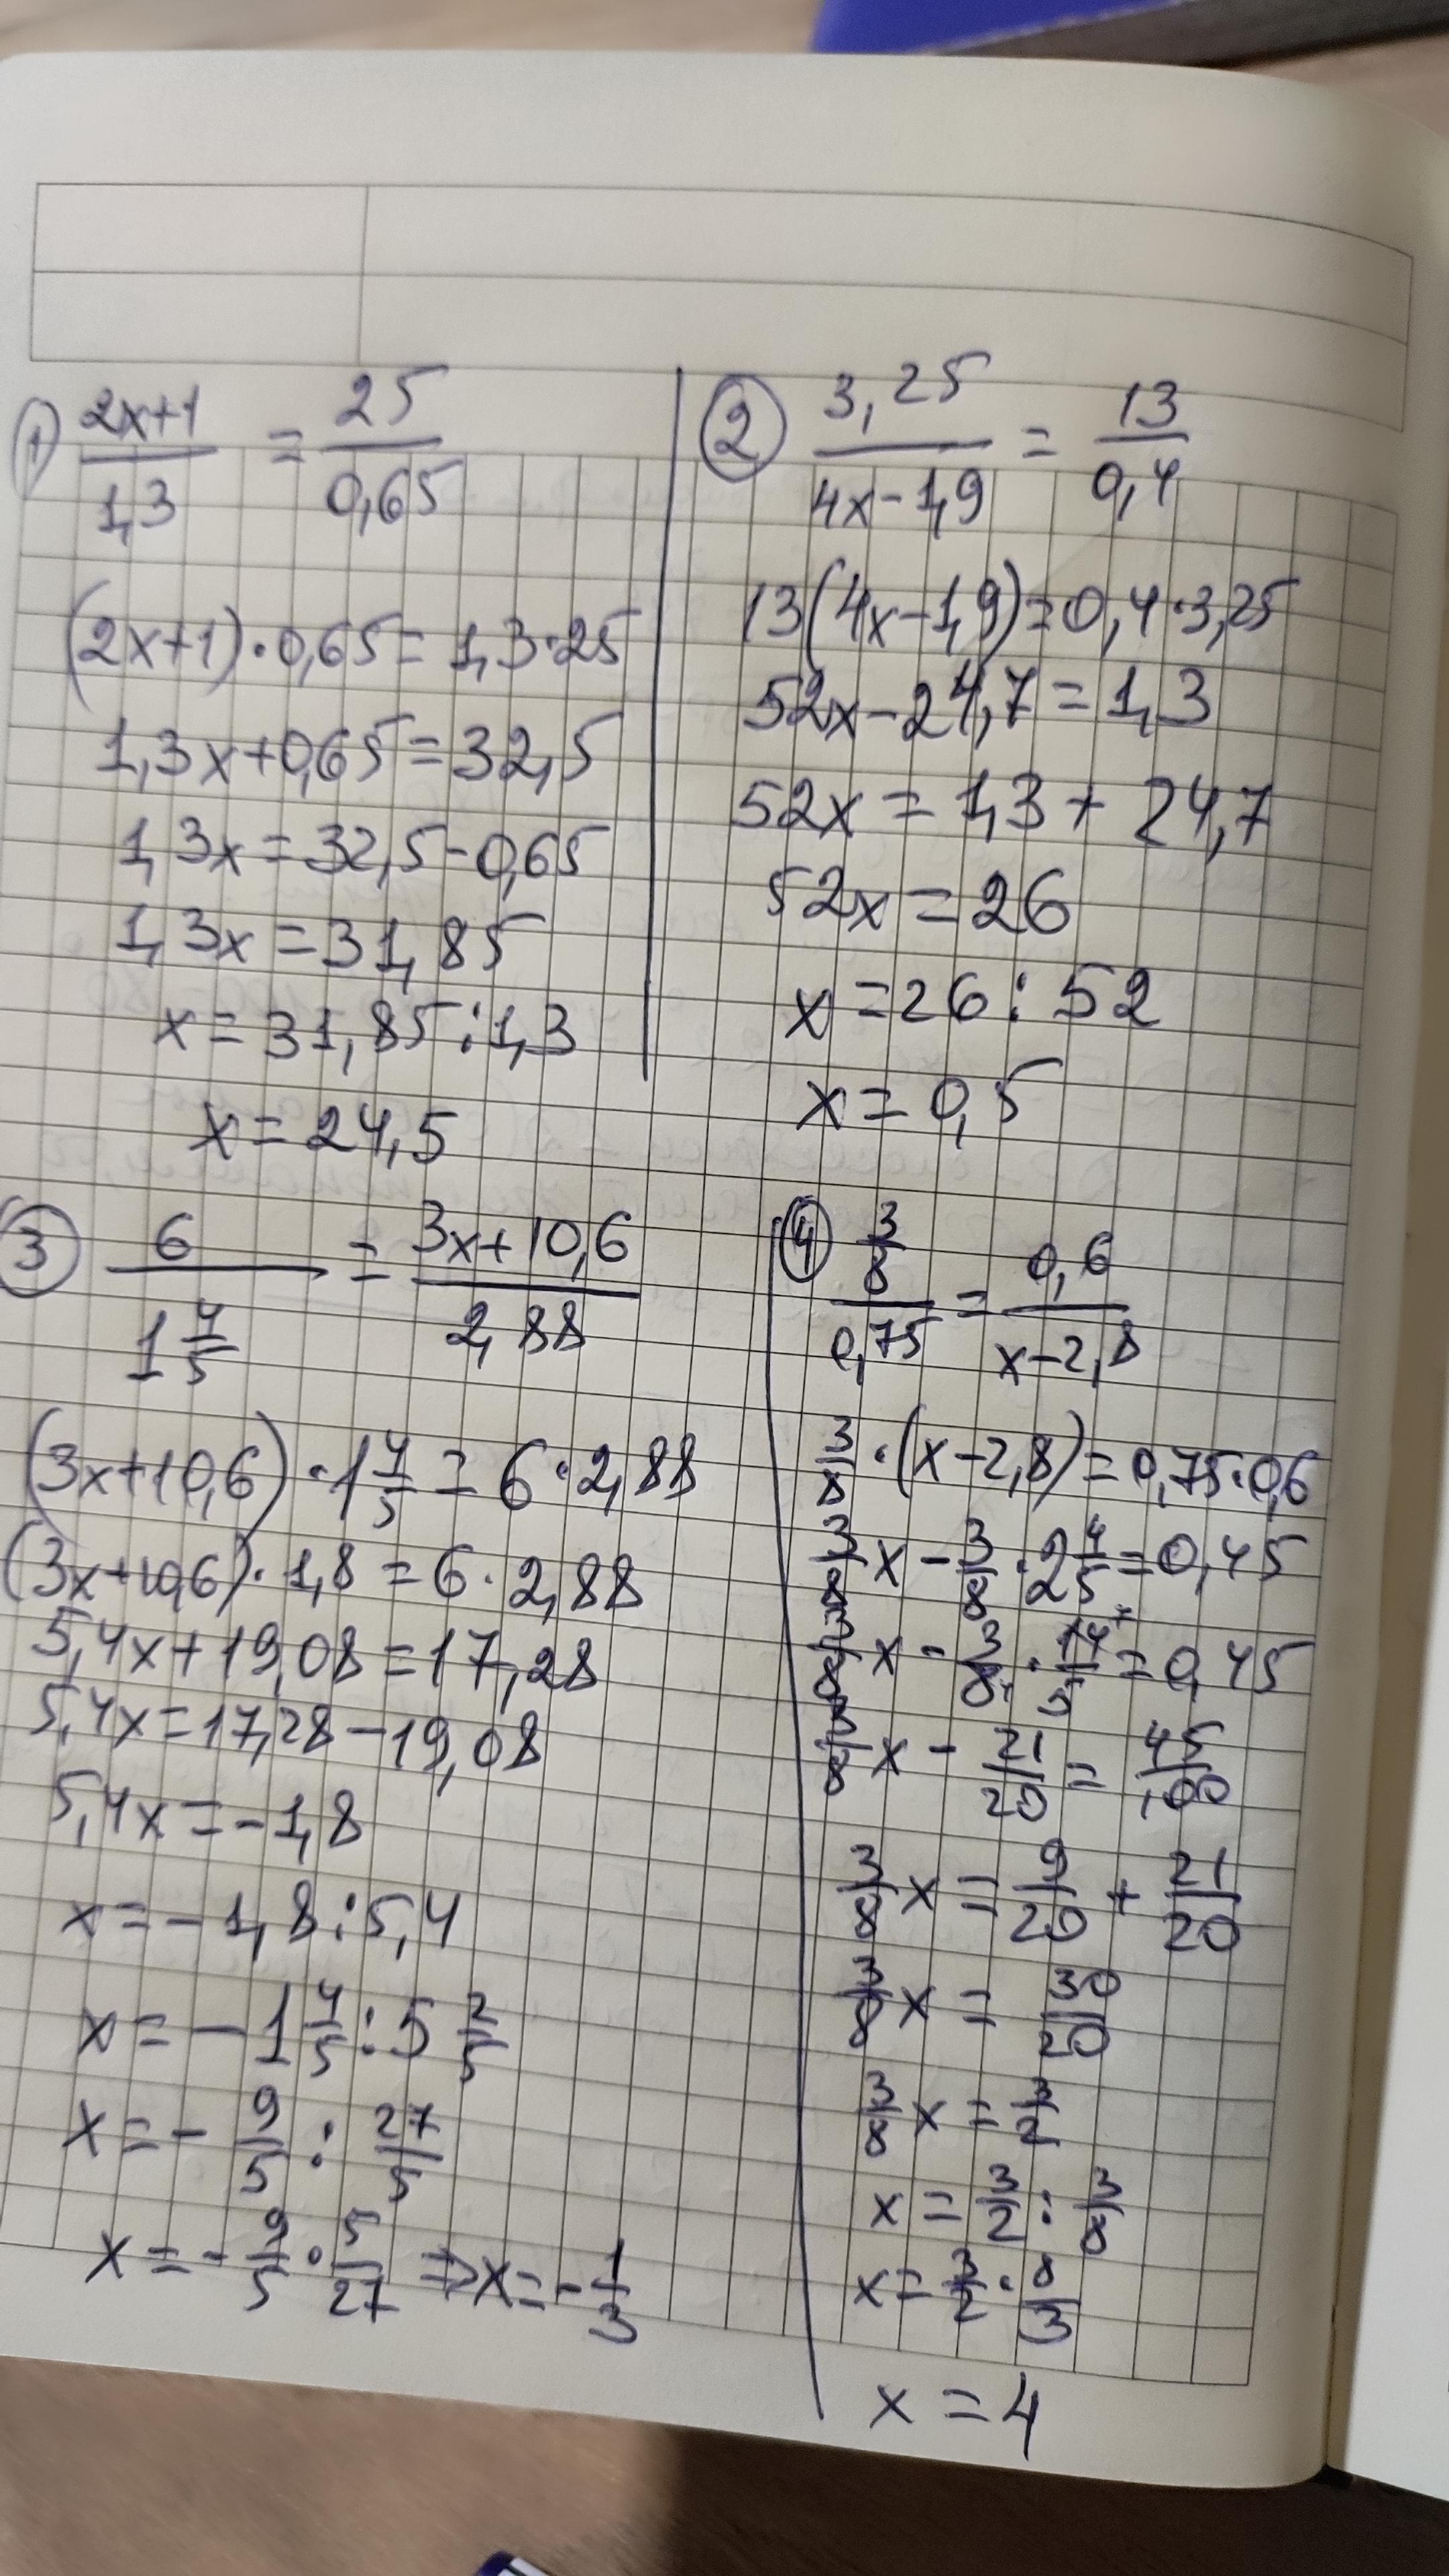 ① (2x+1)/1,3 = 25/0,65
(2x+1)·0,65=1,3·25
1,3x+0,65=32,5
1,3x=32,5-0,65
1,3x=31,85
x=31,85:1,3
x=24,5
② 3,25/(4x-1,9) = 13/0,4
13(4x-1,9)=0,4·3,25
52x-24,7=1,3
52x=1,3+24,7
52x=26
x=26:52
x=0,5
③ 6/(1 4/5) = (3x+10,6)/2,88
(3x+10,6)·1 4/5=6·2,88
(3x+10,6)·1,8=6·2,88
5,4x+19,08=17,28
5,4x=17,28-19,08
5,4x=-1,8
x=-1,8:5,4
x=-1 4/5:5 2/5
x=-9/5:27/5
x=-9/5·5/27 ⇒x=-1/3
④ (3/8)/0,75 = 0,6/(x-2,8)
3/8·(x-2,8)=0,75·0,6
3/8x-3/8·2 4/5=0,45
3/8x-3/8·14/5=0,45
3/8x-21/20=45/100
3/8x=9/20+21/20
3/8x=30/20
3/8x=3/2
x=3/2:3/8
x=3/2·8/3
x=4